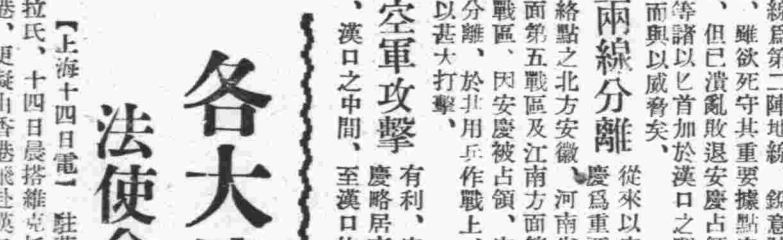 線爲第二陣地線、
、雖欲死守其重要據點
、但已潰亂敗退安慶占
等諸以匕首加於漢口之
而與以威脅矣、
兩線分離
從來以
慶爲重
絡點之北方安徽、河南
面第五戰區及江南方面
戰區、因安慶被占領、
分離、於其用兵作戰上、
以甚大打擊、
空軍攻擊
有利、
慶略居
、漢口之中間、至漢口
各大
法使
【上海十四日電】駐華
拉氏、十四日晨搭維克
港、更擬由香港飛赴漢